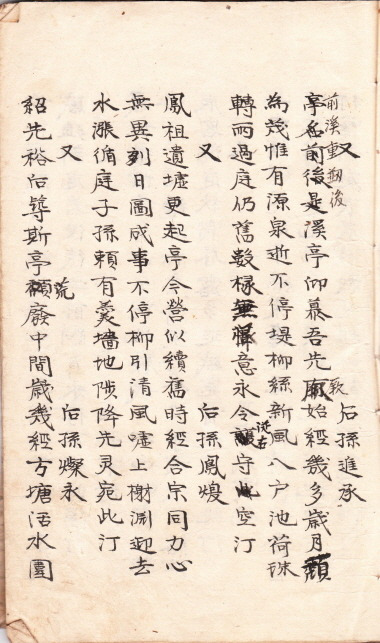 又 后孫進承
亭名前後是溪亭仰慕吾先厥始經幾多歲月頹
為茂惟有源泉逝不停堤柳絲新風入户池荷珠
轉雨過庭仍舊數椽無意永令守此空汀
又 后孫鳳煌
鳳祖遺墟更起亭今營似續舊時經合宗同力心
無異刻日圖成事不停柳引清風噓上榭渊迎去
水漲循庭子孫賴有羹墻地陟降先灵宛此汀
又 后孫燦永
紹先裕后築斯亭荒廢中間歲幾經方塘活水圓